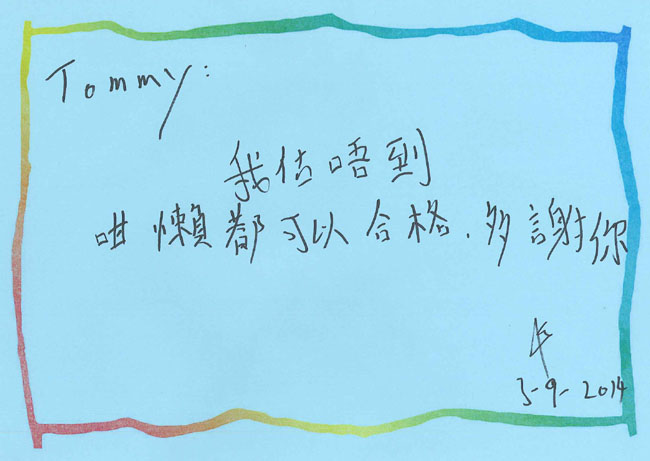 Tommy:
我估唔到
咁懶都可以合格.多謝你
3-9-2014